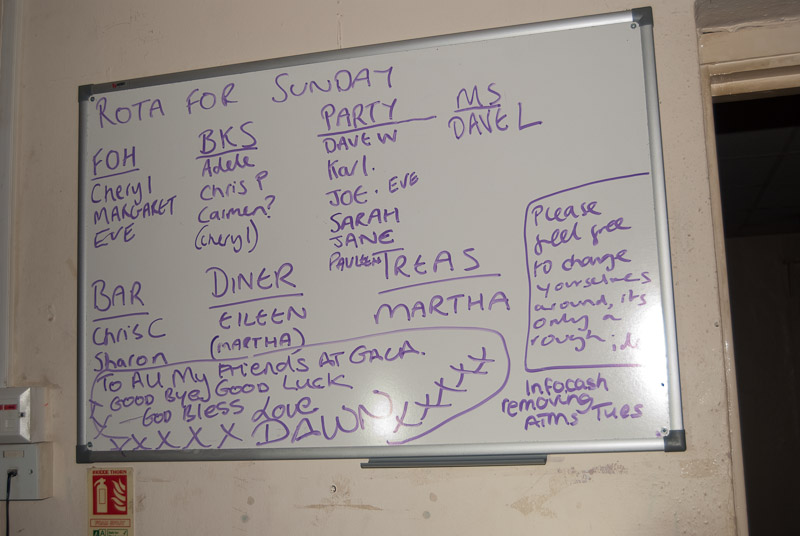 ROTA FOR SUNDAY
FOH
Cheryl
MARGARET
EVE
BKS
Adele
Chris P
Carmen?
(Cheryl)
PARTY
DAVE W
Karl.
JOE. EVE
SARAH
JANE
PAULEEN
MS
DAVE L
BAR
Chris C
Sharon
DINER
EILEEN
(MARTHA)
TREAS
MARTHA
Please
feel free
to change
yourselves
around, its
only a
rough
To All My Friends AT GALA.
X GOOD Bye, GOOD LUCK
X — GOD BLESS Love
XXXXX DAWN XXXXX
Infocash
removing
ATMs Tues